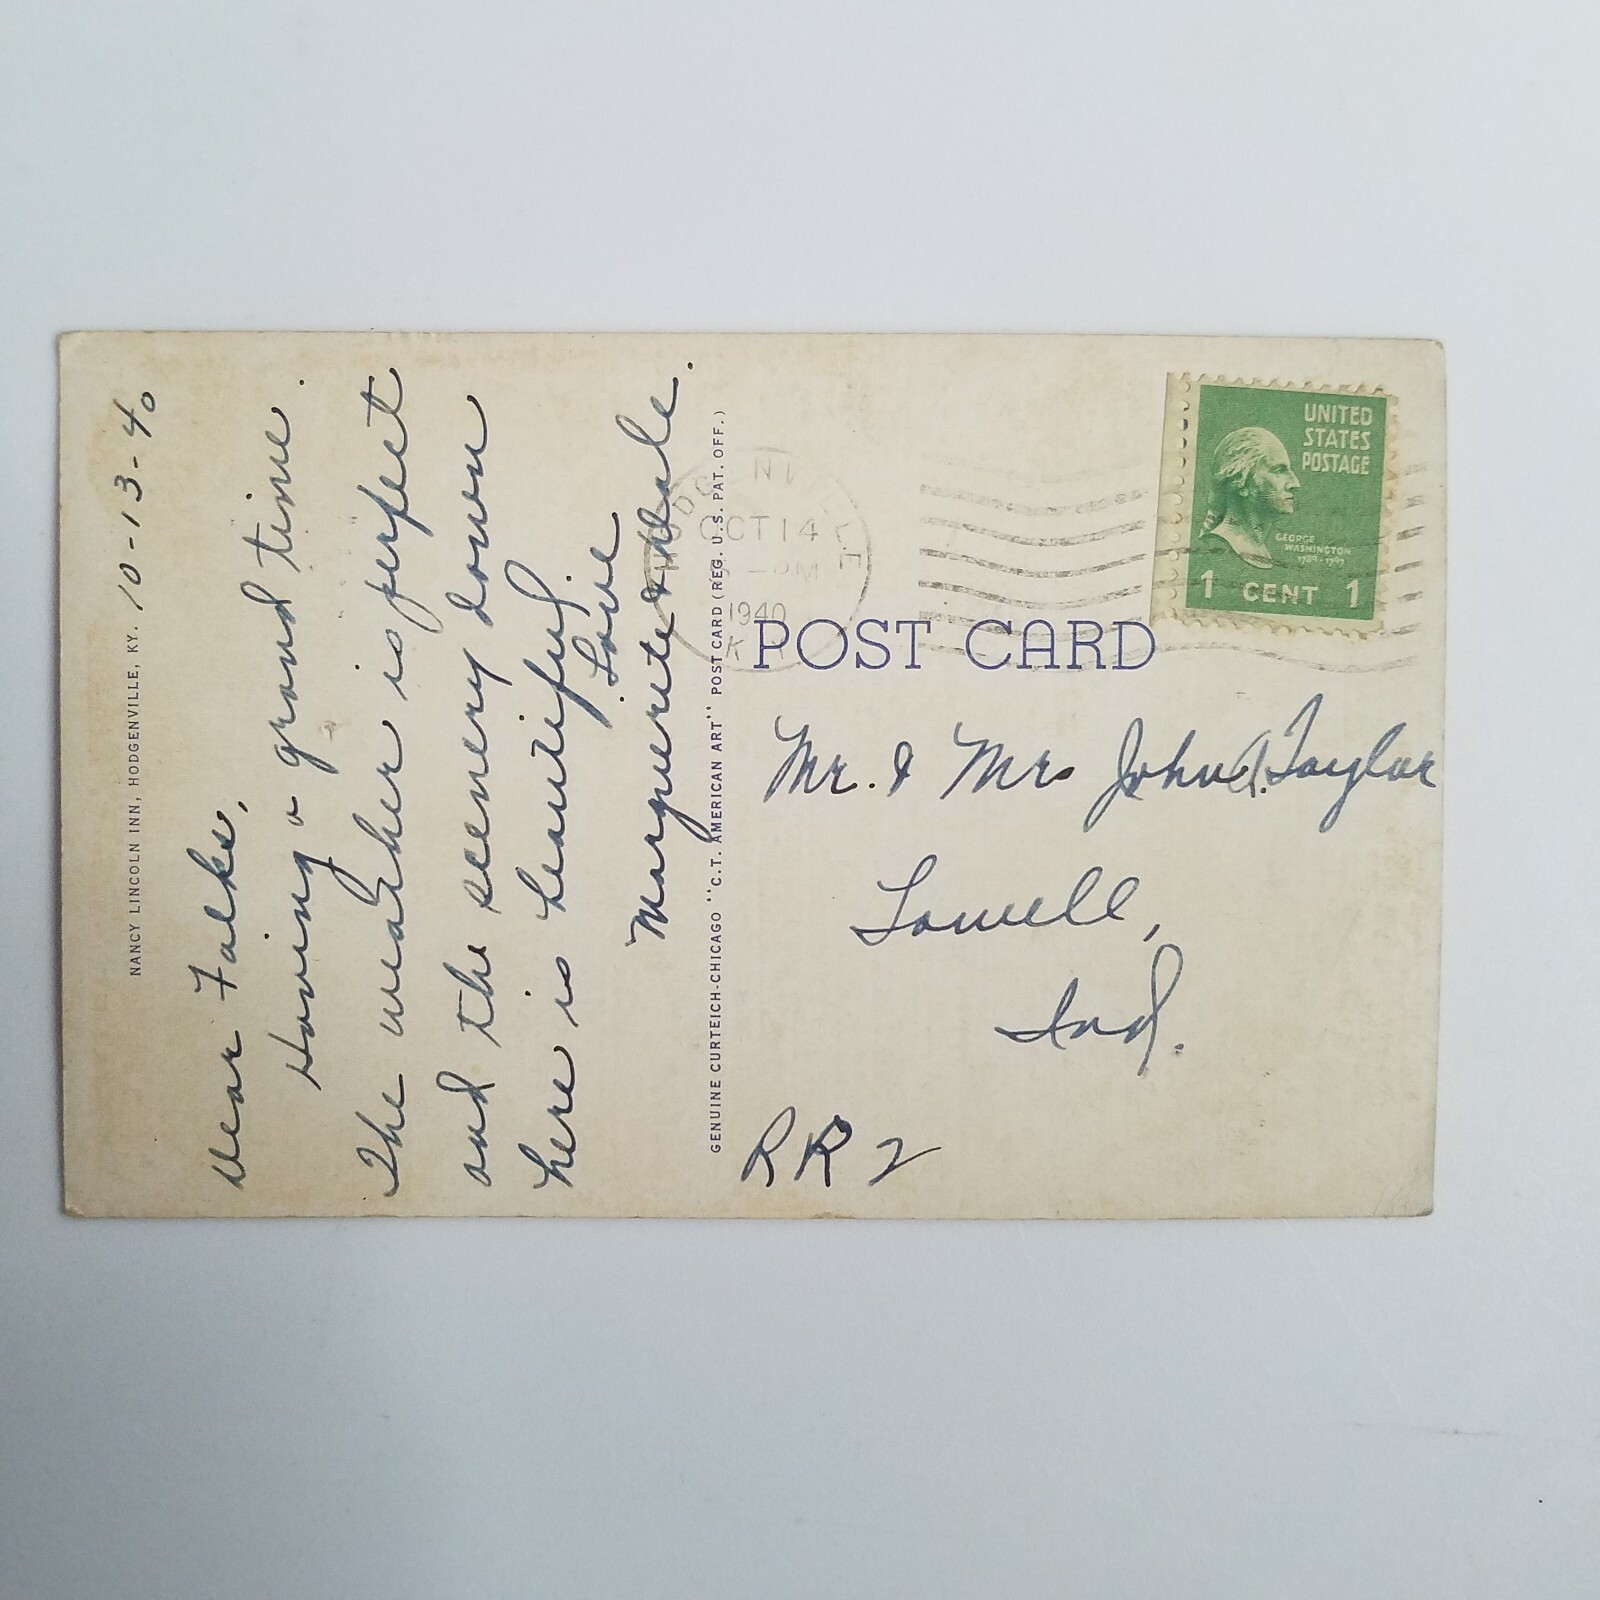 NANCY LINCOLN INN, HODGENVILLE, KY.
10-13-40
Dear Folks,
Having a grand time.
The weather is perfect
and the scenery down
here is beautiful.
Love
Marguerite & Dale.
GENUINE CURTEICH-CHICAGO "C.T. AMERICAN ART" POST CARD (REG. U.S. PAT. OFF.)
HODGENVILLE
OCT 14
1940
UNITED
STATES
POSTAGE
GEORGE
WASHINGTON
1789-1797
1 CENT 1
POST CARD
Mr. & Mrs John A. Taylor
Lowell,
Ind.
RR 2